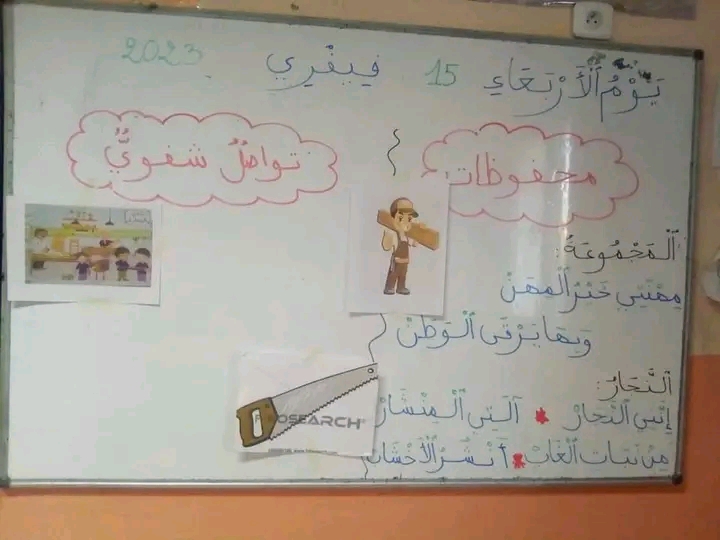 يَوْمُ ٱلْأَرْبَعَاءِ 15 فيفْري 2023
محفوظات
تواصلٌ شفويٌّ
ٱلْمَجْمُوعَةُ:
مِهْنَتِي خَيْرُ ٱلْمِهَنْ
وَبِهَا يَرْقَى ٱلْوَطَنْ
ٱلنَّجَارُ:
إِنَّنِي ٱلنَّجَارْ * آلَتِي ٱلْمِنْشَارْ
مِنْ نَبَات ٱلْغَابْ * أَنْشُرُ ٱلْأَخْشَابْ
OSEARCH